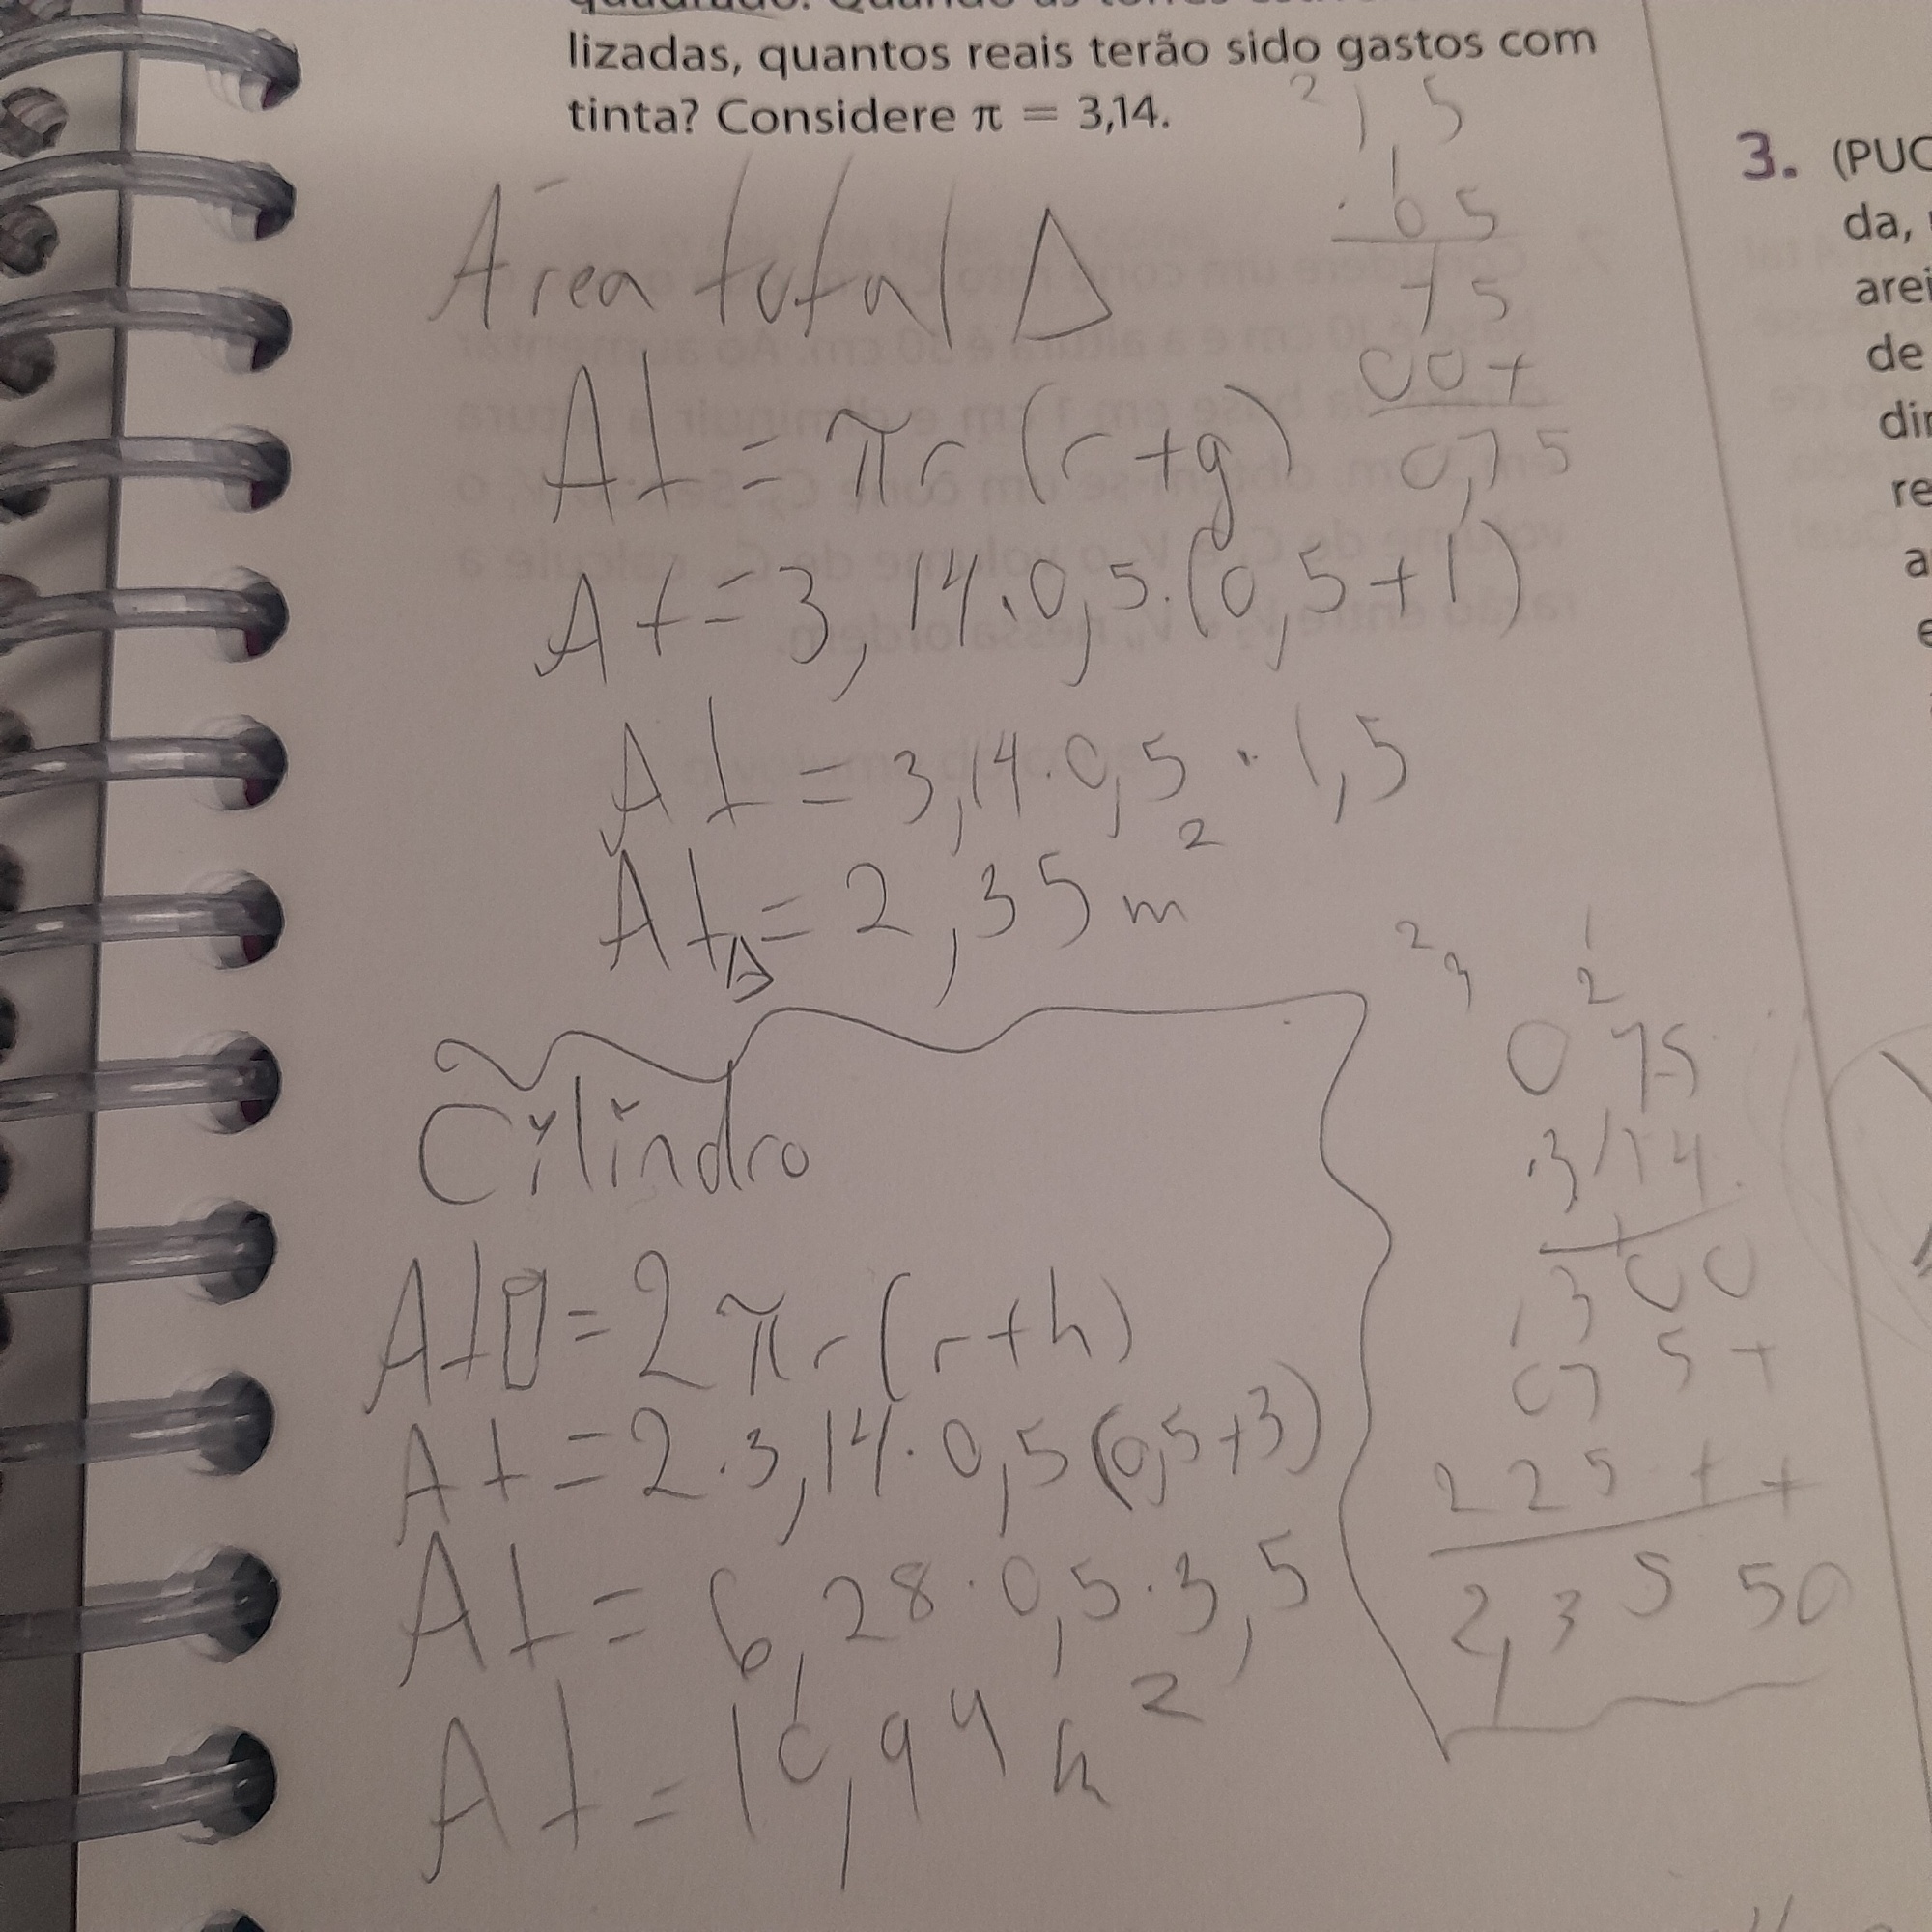 quadrado. Quando as torres
lizadas, quantos reais terão sido gastos com
tinta? Considere π = 3,14.
Área total Δ
At = πr(r+g)
At = 3,14.0,5.(0,5+1)
At = 3,14.0,5 . 1,5
AtΔ = 2,35 m²
2
1,5
1
.05
75
00+
0,75
Cilindro
At = 2πr(r+h)
At = 2.3,14.0,5(0,5+3)
At = 6,28.0,5.3,5
At = 10,99 m²
1
2 2
075
.3,14
1
300
075+
225++
2,3550
3. (PUC
da,
arei
de
dir
re
a
e